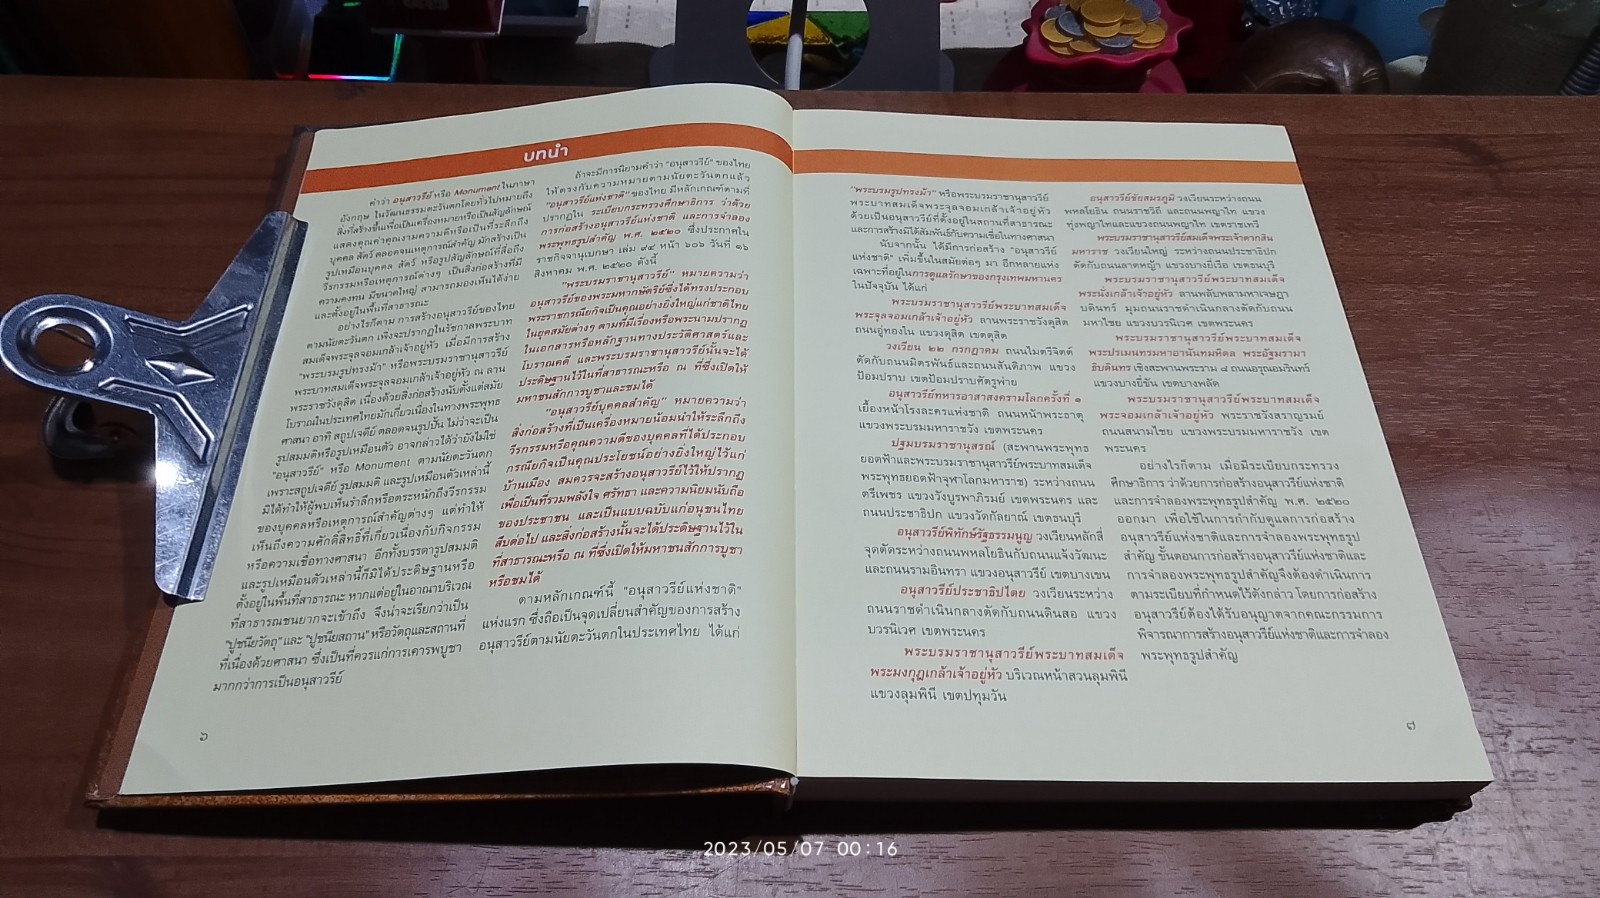 บทนำ
คำว่า อนุสาวรีย์ หรือ Monument ในภาษา
อังกฤษ ในวัฒนธรรมตะวันตกโดยทั่วไปหมายถึง
สิ่งที่สร้างขึ้นเพื่อเป็นเครื่องหมายหรือเป็นสัญลักษณ์
แสดงคุณค่าคุณงามความดีหรือเป็นที่ระลึกถึง
บุคคล สัตว์ ตลอดจนเหตุการณ์สำคัญ มักสร้างเป็น
รูปเหมือนบุคคล สัตว์ หรือรูปสัญลักษณ์ที่สื่อถึง
วีรกรรมหรือเหตุการณ์ต่างๆ เป็นสิ่งก่อสร้างที่มี
ความคงทน มีขนาดใหญ่ สามารถมองเห็นได้ง่าย
และตั้งอยู่ในพื้นที่สาธารณะ
อย่างไรก็ตาม การสร้างอนุสาวรีย์ของไทย
ตามนัยตะวันตก เพิ่งจะปรากฏในรัชกาลพระบาท
สมเด็จพระจุลจอมเกล้าเจ้าอยู่หัว เมื่อมีการสร้าง
"พระบรมรูปทรงม้า" หรือพระบรมราชานุสาวรีย์
พระบาทสมเด็จพระจุลจอมเกล้าเจ้าอยู่หัว ณ ลาน
พระราชวังดุสิต เนื่องด้วยสิ่งก่อสร้างนับตั้งแต่สมัย
โบราณในประเทศไทยมักเกี่ยวเนื่องในทางพระพุทธ
ศาสนา อาทิ สถูปเจดีย์ ตลอดจนรูปปั้น ไม่ว่าจะเป็น
รูปสมมติหรือรูปเหมือนตัว อาจกล่าวได้ว่ายังไม่ใช่
"อนุสาวรีย์" หรือ Monument ตามนัยตะวันตก
เพราะสถูปเจดีย์ รูปสมมติ และรูปเหมือนตัวเหล่านี้
มิได้ทำให้ผู้พบเห็นรำลึกหรือตระหนักถึงวีรกรรม
ของบุคคลหรือเหตุการณ์สำคัญต่างๆ แต่ทำให้
เห็นถึงความศักดิ์สิทธิ์ที่เกี่ยวเนื่องกับกิจกรรม
หรือความเชื่อทางศาสนา อีกทั้งบรรดารูปสมมติ
และรูปเหมือนตัวเหล่านี้ก็มิได้ประดิษฐานหรือ
ตั้งอยู่ในพื้นที่สาธารณะ หากแต่อยู่ในอาณาบริเวณ
ที่สาธารณชนยากจะเข้าถึง จึงน่าจะเรียกว่าเป็น
"ปูชนียวัตถุ" และ "ปูชนียสถาน" หรือวัตถุและสถานที่
ที่เนื่องด้วยศาสนา ซึ่งเป็นที่ควรแก่การเคารพบูชา
มากกว่าการเป็นอนุสาวรีย์
ถ้าจะมีการนิยามคำว่า "อนุสาวรีย์" ของไทย
ให้ตรงกับความหมายตามนัยตะวันตกแล้ว
"อนุสาวรีย์แห่งชาติ" ของไทย มีหลักเกณฑ์ตามที่
ปรากฏใน ระเบียบกระทรวงศึกษาธิการ ว่าด้วย
การก่อสร้างอนุสาวรีย์แห่งชาติ และการจำลอง
พระพุทธรูปสำคัญ พ.ศ. ๒๕๒๐ ซึ่งประกาศใน
ราชกิจจานุเบกษา เล่ม ๙๔ หน้า ๖๐๖ วันที่ ๑๖
สิงหาคม พ.ศ. ๒๕๒๐ ดังนี้
"พระบรมราชานุสาวรีย์" หมายความว่า
อนุสาวรีย์ของพระมหากษัตริย์ซึ่งได้ทรงประกอบ
พระราชกรณียกิจเป็นคุณอย่างยิ่งใหญ่แก่ชาติไทย
ในยุคสมัยต่างๆ ตามที่มีเรื่องหรือพระนามปรากฏ
ในเอกสารหรือหลักฐานทางประวัติศาสตร์และ
โบราณคดี และพระบรมราชานุสาวรีย์นั้นจะได้
ประดิษฐานไว้ในที่สาธารณะหรือ ณ ที่ซึ่งเปิดให้
มหาชนสักการบูชาและชมได้
"อนุสาวรีย์บุคคลสำคัญ" หมายความว่า
สิ่งก่อสร้างที่เป็นเครื่องหมายน้อมนำให้ระลึกถึง
วีรกรรมหรือคุณความดีของบุคคลที่ได้ประกอบ
กรณียกิจเป็นคุณประโยชน์อย่างยิ่งใหญ่ไว้แก่
บ้านเมือง สมควรจะสร้างอนุสาวรีย์ไว้ให้ปรากฏ
เพื่อเป็นที่รวมพลังใจ ศรัทธา และความนิยมนับถือ
ของประชาชน และเป็นแบบฉบับแก่อนุชนไทย
สืบต่อไป และสิ่งก่อสร้างนั้นจะได้ประดิษฐานไว้ใน
ที่สาธารณะหรือ ณ ที่ซึ่งเปิดให้มหาชนสักการบูชา
หรือชมได้
ตามหลักเกณฑ์นี้ "อนุสาวรีย์แห่งชาติ"
แห่งแรก ซึ่งถือเป็นจุดเปลี่ยนสำคัญของการสร้าง
อนุสาวรีย์ตามนัยตะวันตกในประเทศไทย ได้แก่
๖
"พระบรมรูปทรงม้า" หรือพระบรมราชานุสาวรีย์
พระบาทสมเด็จพระจุลจอมเกล้าเจ้าอยู่หัว
ด้วยเป็นอนุสาวรีย์ที่ตั้งอยู่ในสถานที่สาธารณะ
และการสร้างมิได้สัมพันธ์กับความเชื่อในทางศาสนา
นับจากนั้น ได้มีการก่อสร้าง "อนุสาวรีย์
แห่งชาติ" เพิ่มขึ้นในสมัยต่อๆ มา อีกหลายแห่ง
เฉพาะที่อยู่ในการดูแลรักษาของกรุงเทพมหานคร
ในปัจจุบัน ได้แก่
พระบรมราชานุสาวรีย์พระบาทสมเด็จ
พระจุลจอมเกล้าเจ้าอยู่หัว ลานพระราชวังดุสิต
ถนนอู่ทองใน แขวงดุสิต เขตดุสิต
วงเวียน ๒๒ กรกฎาคม ถนนไมตรีจิตต์
ตัดกับถนนมิตรพันธ์และถนนสันติภาพ แขวง
ป้อมปราบ เขตป้อมปราบศัตรูพ่าย
อนุสาวรีย์ทหารอาสาสงครามโลกครั้งที่ ๑
เยื้องหน้าโรงละครแห่งชาติ ถนนหน้าพระธาตุ
แขวงพระบรมมหาราชวัง เขตพระนคร
ปฐมบรมราชานุสรณ์ (สะพานพระพุทธ
ยอดฟ้าและพระบรมราชานุสาวรีย์พระบาทสมเด็จ
พระพุทธยอดฟ้าจุฬาโลกมหาราช) ระหว่างถนน
ตรีเพชร แขวงวังบูรพาภิรมย์ เขตพระนคร และ
ถนนประชาธิปก แขวงวัดกัลยาณ์ เขตธนบุรี
อนุสาวรีย์พิทักษ์รัฐธรรมนูญ วงเวียนหลักสี่
จุดตัดระหว่างถนนพหลโยธินกับถนนแจ้งวัฒนะ
และถนนรามอินทรา แขวงอนุสาวรีย์ เขตบางเขน
อนุสาวรีย์ประชาธิปไตย วงเวียนระหว่าง
ถนนราชดำเนินกลางตัดกับถนนดินสอ แขวง
บวรนิเวศ เขตพระนคร
พระบรมราชานุสาวรีย์พระบาทสมเด็จ
พระมงกุฎเกล้าเจ้าอยู่หัว บริเวณหน้าสวนลุมพินี
แขวงลุมพินี เขตปทุมวัน
อนุสาวรีย์ชัยสมรภูมิ วงเวียนระหว่างถนน
พหลโยธิน ถนนราชวิถี และถนนพญาไท แขวง
ทุ่งพญาไทและแขวงถนนพญาไท เขตราชเทวี
พระบรมราชานุสาวรีย์สมเด็จพระเจ้าตากสิน
มหาราช วงเวียนใหญ่ ระหว่างถนนประชาธิปก
ตัดกับถนนลาดหญ้า แขวงบางยี่เรือ เขตธนบุรี
พระบรมราชานุสาวรีย์พระบาทสมเด็จ
พระนั่งเกล้าเจ้าอยู่หัว ลานพลับพลามหาเจษฎา
บดินทร์ มุมถนนราชดำเนินกลางตัดกับถนน
มหาไชย แขวงบวรนิเวศ เขตพระนคร
พระบรมราชานุสาวรีย์พระบาทสมเด็จ
พระปรเมนทรมหาอานันทมหิดล พระอัฐมรามา
ธิบดินทร เชิงสะพานพระราม ๘ ถนนอรุณอมรินทร์
แขวงบางยี่ขัน เขตบางพลัด
พระบรมราชานุสาวรีย์พระบาทสมเด็จ
พระจอมเกล้าเจ้าอยู่หัว พระราชวังสราญรมย์
ถนนสนามไชย แขวงพระบรมมหาราชวัง เขต
พระนคร
อย่างไรก็ตาม เมื่อมีระเบียบกระทรวง
ศึกษาธิการ ว่าด้วยการก่อสร้างอนุสาวรีย์แห่งชาติ
และการจำลองพระพุทธรูปสำคัญ พ.ศ. ๒๕๒๐
ออกมา เพื่อใช้ในการกำกับดูแลการก่อสร้าง
อนุสาวรีย์แห่งชาติและการจำลองพระพุทธรูป
สำคัญ ขั้นตอนการก่อสร้างอนุสาวรีย์แห่งชาติและ
การจำลองพระพุทธรูปสำคัญจึงต้องดำเนินการ
ตามระเบียบที่กำหนดไว้ดังกล่าว โดยการก่อสร้าง
อนุสาวรีย์ต้องได้รับอนุญาตจากคณะกรรมการ
พิจารณาการสร้างอนุสาวรีย์แห่งชาติและการจำลอง
พระพุทธรูปสำคัญ
๗
2023/05/07 00:16